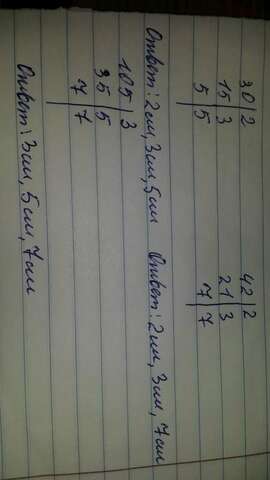 30|2 42|2
15|3 21|3
5|5 7|7
Ответ: 2см, 3см, 5см Ответ: 2см, 3см, 7см
105|3
35|5
7|7
Ответ: 3см, 5см, 7см